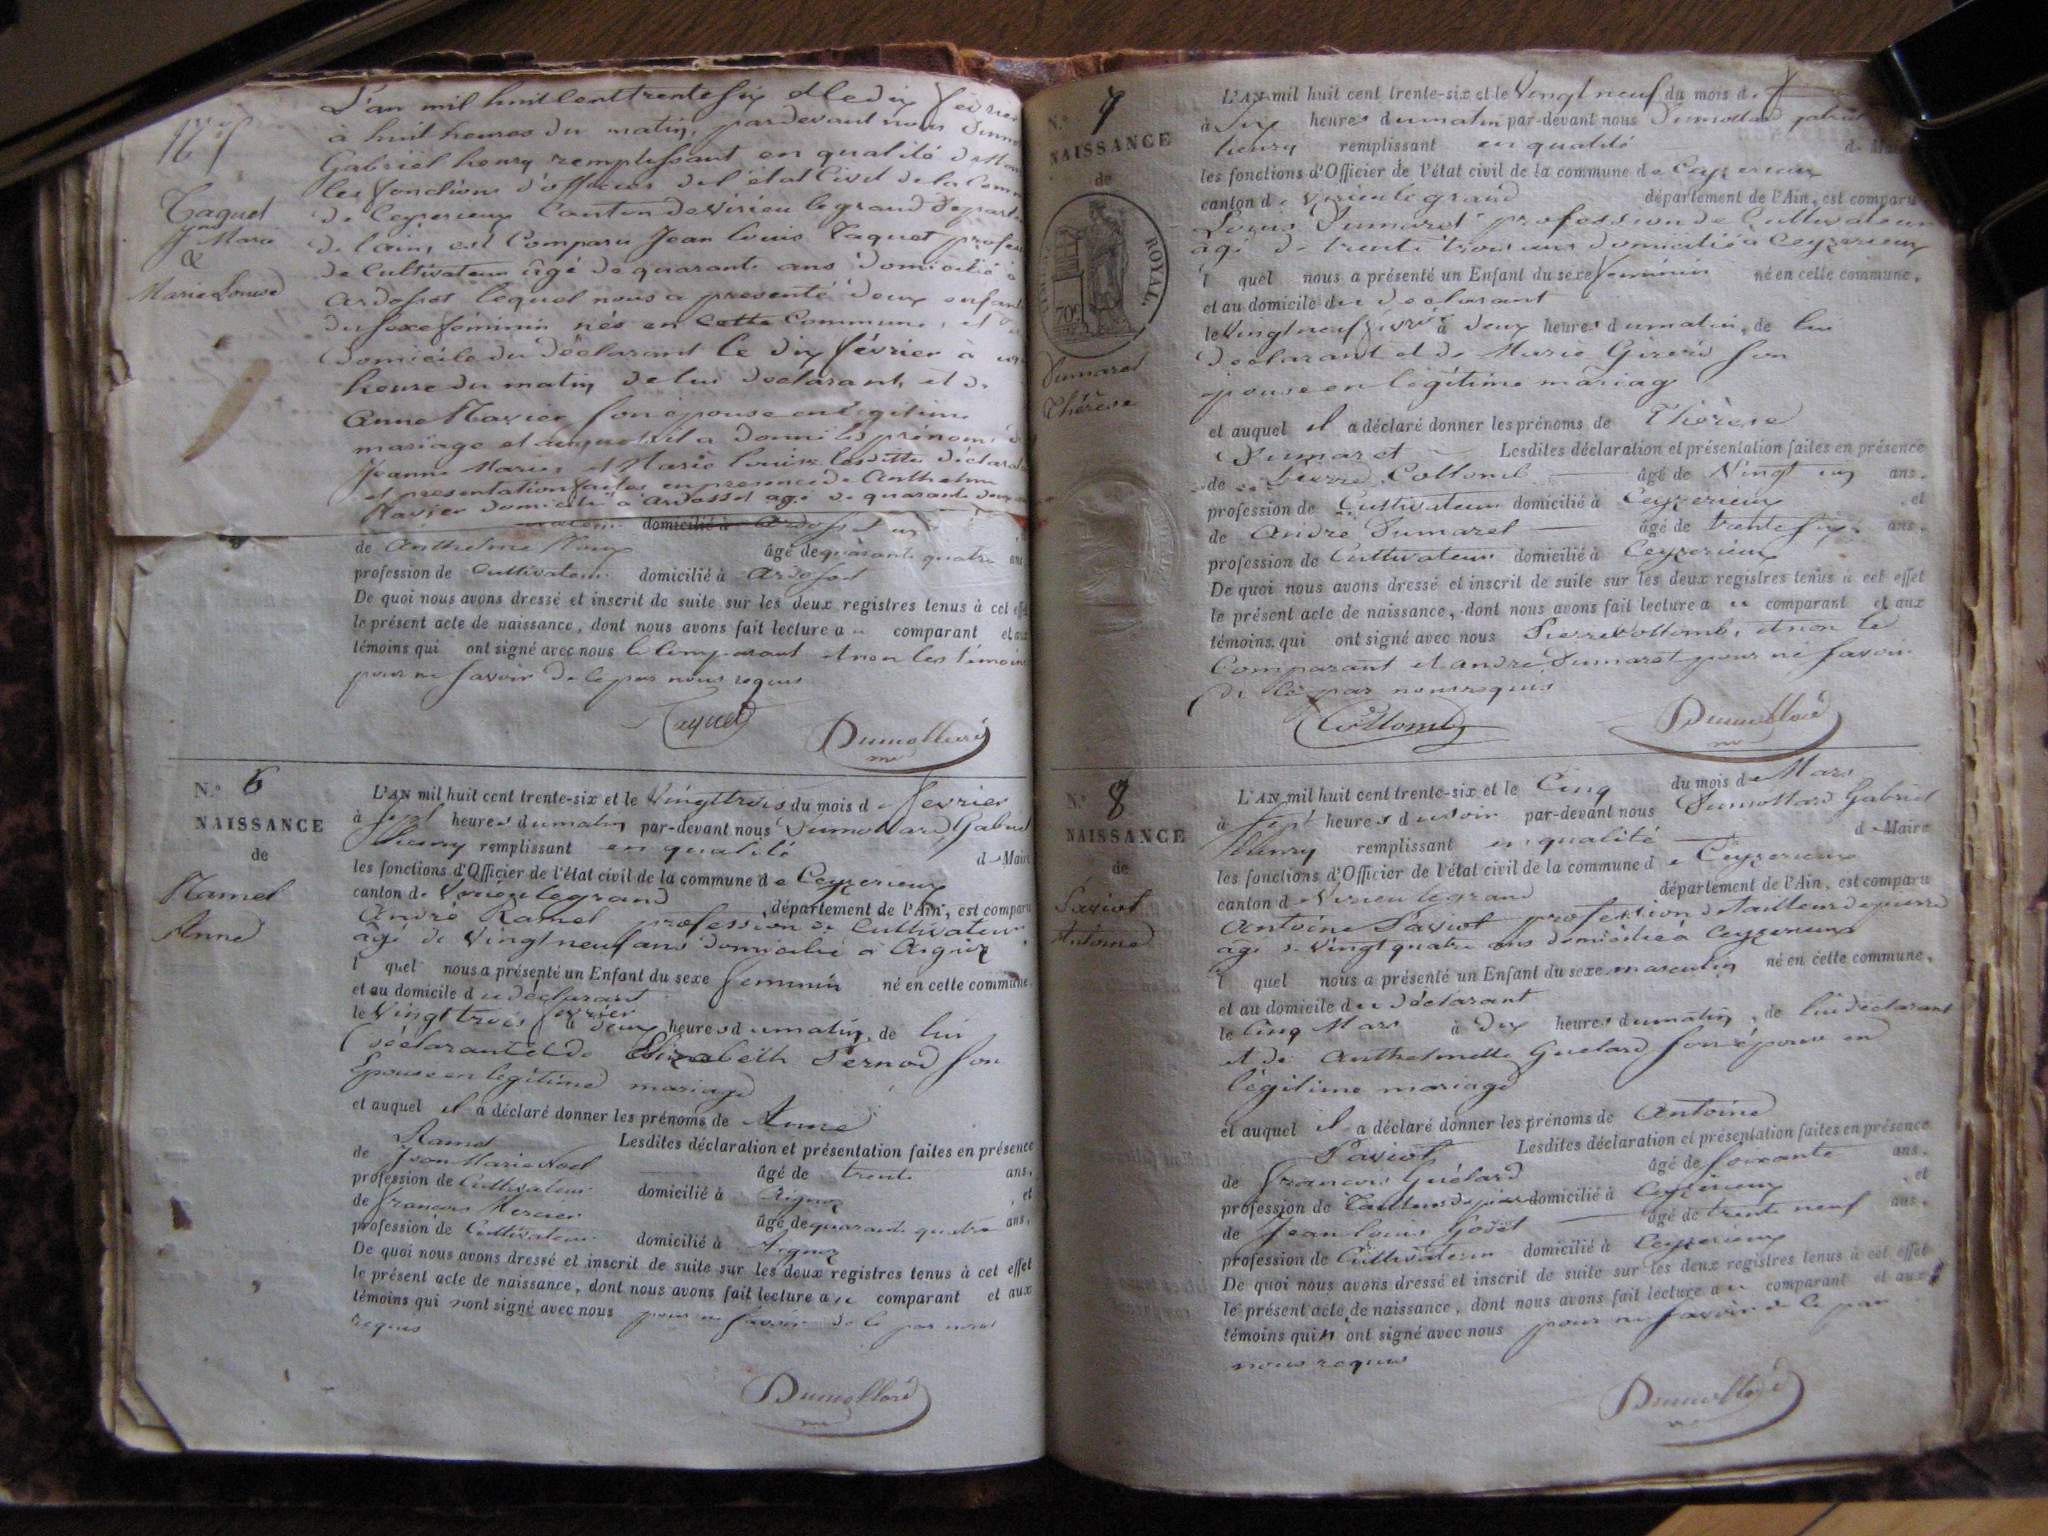 N.º 5
Taquet
Jne Marie
&
Marie Louise
L'an mil huit cent trente six et le dix février
à huit heures du matin, pardevant nous
Gabriël henry remplissant en qualité de
les fonctions d'officier de l'état Civil de la
de Ceyzerieux Canton de virieu le grand
de l'ain, est Comparu Jean Louis Taquet
de Cultivateur âgé de quarante ans domicilié à
ardosset lequel nous a presenté deux
du sexe féminin nés en cette Commune, et
domicile du déclarant le dix février à
heure du matin de lui déclarant, et de
anne Ravier son épouse en légitime
mariage et auxquels il a donné les prénoms
Jeanne Marie, et Marie Louise lesdittes
et présentation faites en presence de Anthelme
Ravier domicilié à ardosset agé de quarante deux
domicilié à
de Anthelme âgé de quarante quatre ans,
profession de Cultivateur domicilié à ardosset
De quoi nous avons dressé et inscrit de suite sur les deux registres tenus à cet effet
le présent acte de naissance, dont nous avons fait lecture au comparant et aux
témoins qui ont signé avec nous le Comparant et non les témoins
pour ne savoir de ce par nous requis
Taquet Dumollard
N.º 6
NAISSANCE
de
Ramel
Anne
L'AN mil huit cent trente-six et le vingt trois du mois de février
à sept heures du matin par-devant nous Dumollard Gabriel
henry remplissant en qualité de Maire
les fonctions d'Officier de l'état civil de la commune de Ceyzerieux
canton de Virieu le grand département de l'Ain, est comparu
André Ramel profession de Cultivateur
âgé de vingt neuf ans domicilié à Aignoz
lequel nous a présenté un Enfant du sexe féminin né en cette commune,
et au domicile du déclarant
le vingt trois février à deux heures du matin, de lui
déclarant et de Elizabeth Pernod son
épouse en légitime mariage
et auquel il a déclaré donner les prénoms de Anne
Ramel Lesdites déclaration et présentation faites en présence
de Jean Marie Noel âgé de trente ans,
profession de Cultivateur domicilié à Aignoz, et
de francois Mercier âgé de quarante quatre ans,
profession de Cultivateur domicilié à Aignoz
De quoi nous avons dressé et inscrit de suite sur les deux registres tenus à cet effet
le présent acte de naissance, dont nous avons fait lecture au comparant et aux
témoins qui n'ont signé avec nous pour ne savoir de ce par nous
requis
Dumollard
N.º 7
NAISSANCE
de
TIMBRE ROYAL
70c
Dumaret
Thérèse
L'AN mil huit cent trente-six et le vingt neuf du mois de
à six heures du matin par-devant nous Dumollard gabriel
henry remplissant en qualité de Maire
les fonctions d'Officier de l'état civil de la commune de Ceyzerieux
canton de virieu le grand département de l'Ain, est comparu
Louis Dumaret profession de Cultivateur
âgé de trente trois ans domicilié à Ceyzerieux
lequel nous a présenté un Enfant du sexe féminin né en cette commune,
et au domicile du declarant
le vingt neuf février à deux heures du matin, de lui
declarant et de Marie Girerd son
épouse en légitime mariage
et auquel il a déclaré donner les prénoms de Thérèse
Dumaret Lesdites déclaration et présentation faites en présence
de Pierre Collomb âgé de vingt un ans,
profession de Cultivateur domicilié à Ceyzerieux, et
de André Dumaret âgé de trente six ans,
profession de Cultivateur domicilié à Ceyzerieux
De quoi nous avons dressé et inscrit de suite sur les deux registres tenus à cet effet
le présent acte de naissance, dont nous avons fait lecture au comparant et aux
témoins, qui ont signé avec nous Pierre Collomb, et non le
Comparant et andré Dumaret pour ne savoir
de ce par nous requis
Collomb Dumollard
N.º 8
NAISSANCE
de
Paviot
Antoine
L'AN mil huit cent trente-six et le Cinq du mois de Mars
à sept heures du soir par-devant nous Dumollard Gabriel
henry remplissant en qualité de Maire
les fonctions d'Officier de l'état civil de la commune de Ceyzerieux
canton de Virieu le grand département de l'Ain, est comparu
Antoine Paviot profession de tailleur de pierre
âgé de vingt quatre ans domicilié à Ceyzerieux
lequel nous a présenté un Enfant du sexe masculin né en cette commune,
et au domicile du déclarant
le Cinq Mars à dix heures du matin, de lui déclarant
et de Anthelmette Guelard son épouse en
légitime mariage
et auquel il a déclaré donner les prénoms de Antoine
Paviot Lesdites déclaration et présentation faites en présence
de francois Guélard âgé de soixante ans,
profession de tailleur de pierre domicilié à Ceyzerieux, et
de Jean Louis Godet âgé de trente neuf ans,
profession de Cultivateur domicilié à Ceyzerieux
De quoi nous avons dressé et inscrit de suite sur les deux registres tenus à cet effet
le présent acte de naissance, dont nous avons fait lecture au comparant et aux
témoins qui n'ont signé avec nous pour ne savoir de ce par
nous requis
Dumollard